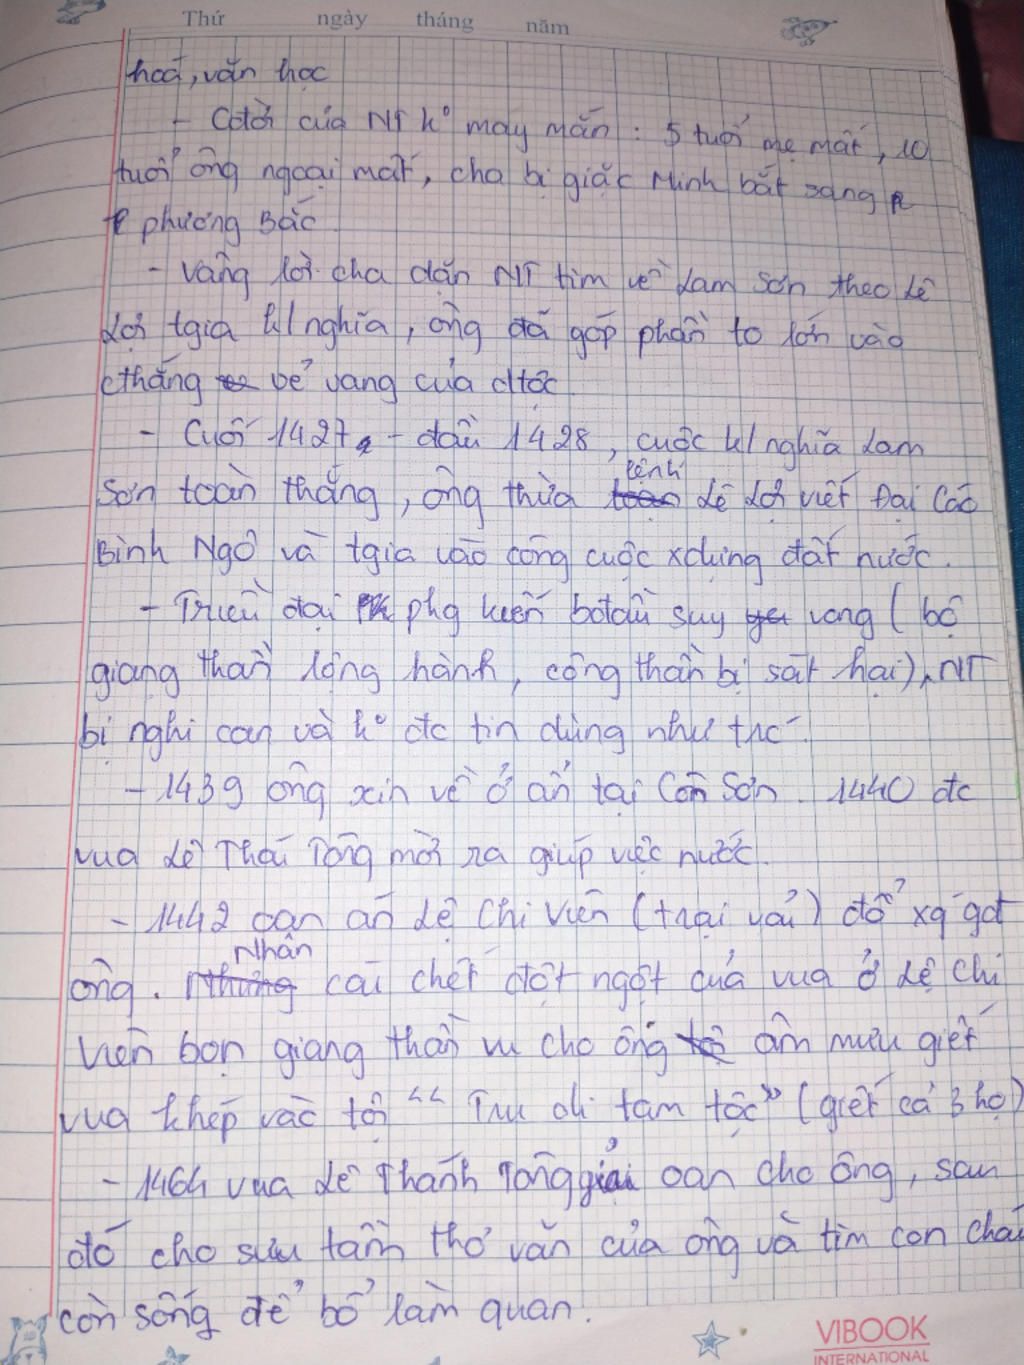 Thứ ngày tháng năm
hoá, văn học
- Cđời của NT kº may mắn : 5 tuổi mẹ mất, 10
tuổi ông ngoại mất, cha bị giặc Minh bắt sang
phương Bắc.
- Vâng lời cha dặn NT tìm về Lam Sơn theo Lê
Lợi tgia k/nghĩa, ông đã góp phần to lớn vào
cthắng vẻ vang của dtộc
- Cuối 1427 - đầu 1428, cuộc k/nghĩa Lam
Sơn toàn thắng, ông thừa lệnh Lê Lợi viết Đại Cáo
Bình Ngô và tgia vào công cuộc xdựng đất nước.
- Triều đại phg kiến bđầu suy vong ( bọ
giang thần lộng hành, công thần bị sát hại), NT
bị nghi oan và kº đc tin dùng như trc.
- 1439 ông xin về ở ẩn tại Côn Sơn. 1440 đc
vua Lê Thái Tông mời ra giúp việc nước.
- 1442 oan án Lệ Chi Viên (trại vải) đổ xg gđ
ông. Nhân cái chết đột ngột của vua ở Lệ Chi
Viên bọn giang thần vu cho ông âm mưu giết
vua khép vào tội “ Tru di tam tộc” (giết cả 3 họ)
- 1464 vua Lê Thánh Tông giải oan cho ông, sau
đó cho sưu tầm thơ văn của ông và tìm con cháu
còn sống để bổ làm quan.
VIBOOK
INTERNATIONAL